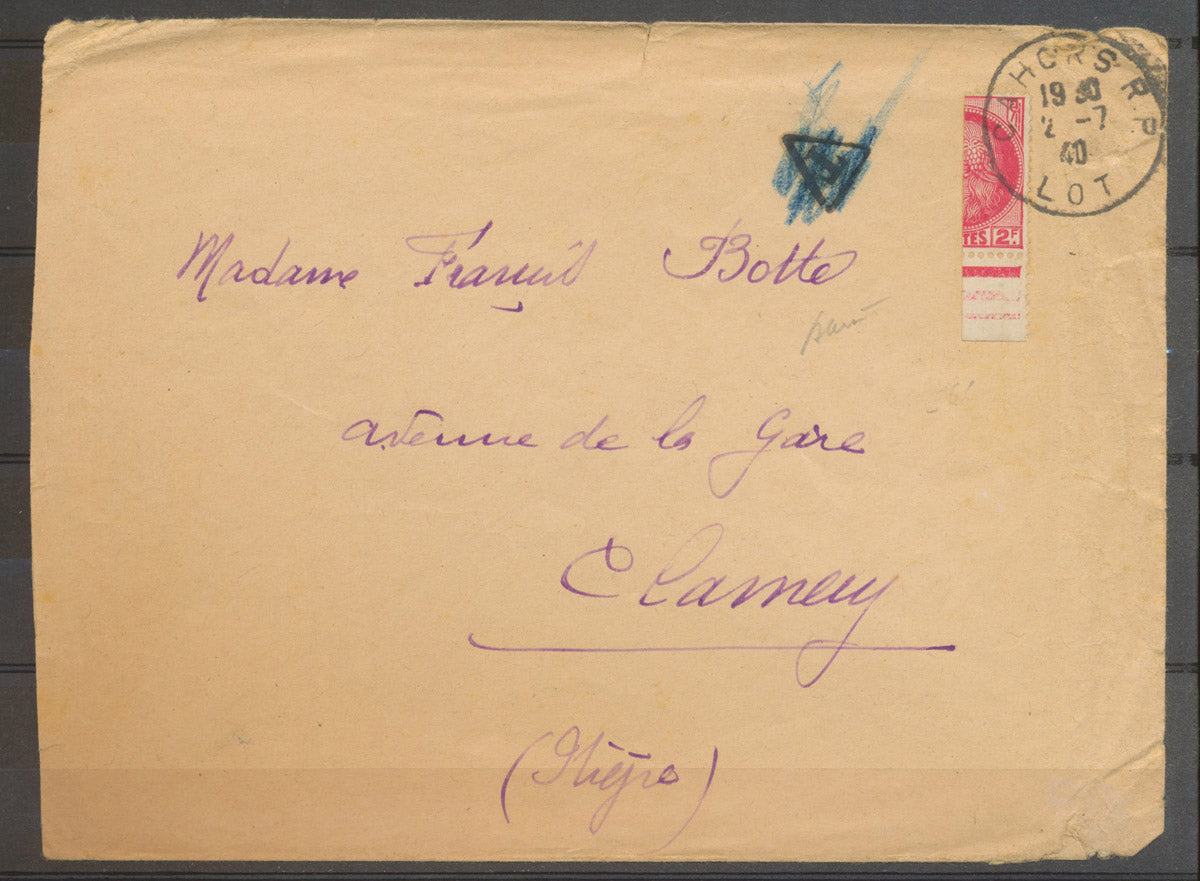 CAHORS R.P
19 30
2 -7
40
LOT
T
TES 2F
Madame Botte
avenue de la Gare
Clamecy
(Nièvre)